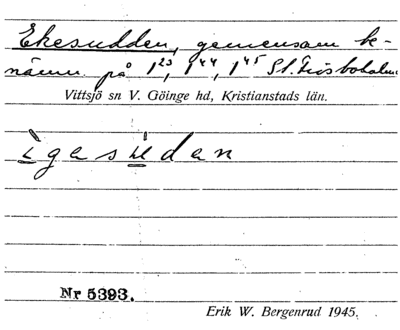 Ekesudden, gemensam be-
nämn. på 1²³, 1⁴⁴, 1⁴⁵ St. Frösboholm.
Vittsjö sn V. Göinge hd, Kristianstads län.
ìgesúdan
Nr 5393.
Erik W. Bergenrud 1945.